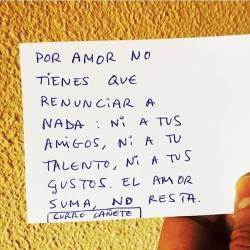 POR AMOR NO
TIENES QUE
RENUNCIAR A
NADA: NI A TUS
AMIGOS, NI A TU
TALENTO, NI A TUS
GUSTOS. EL AMOR
SUMA, NO RESTA.
CURRO CAÑETE